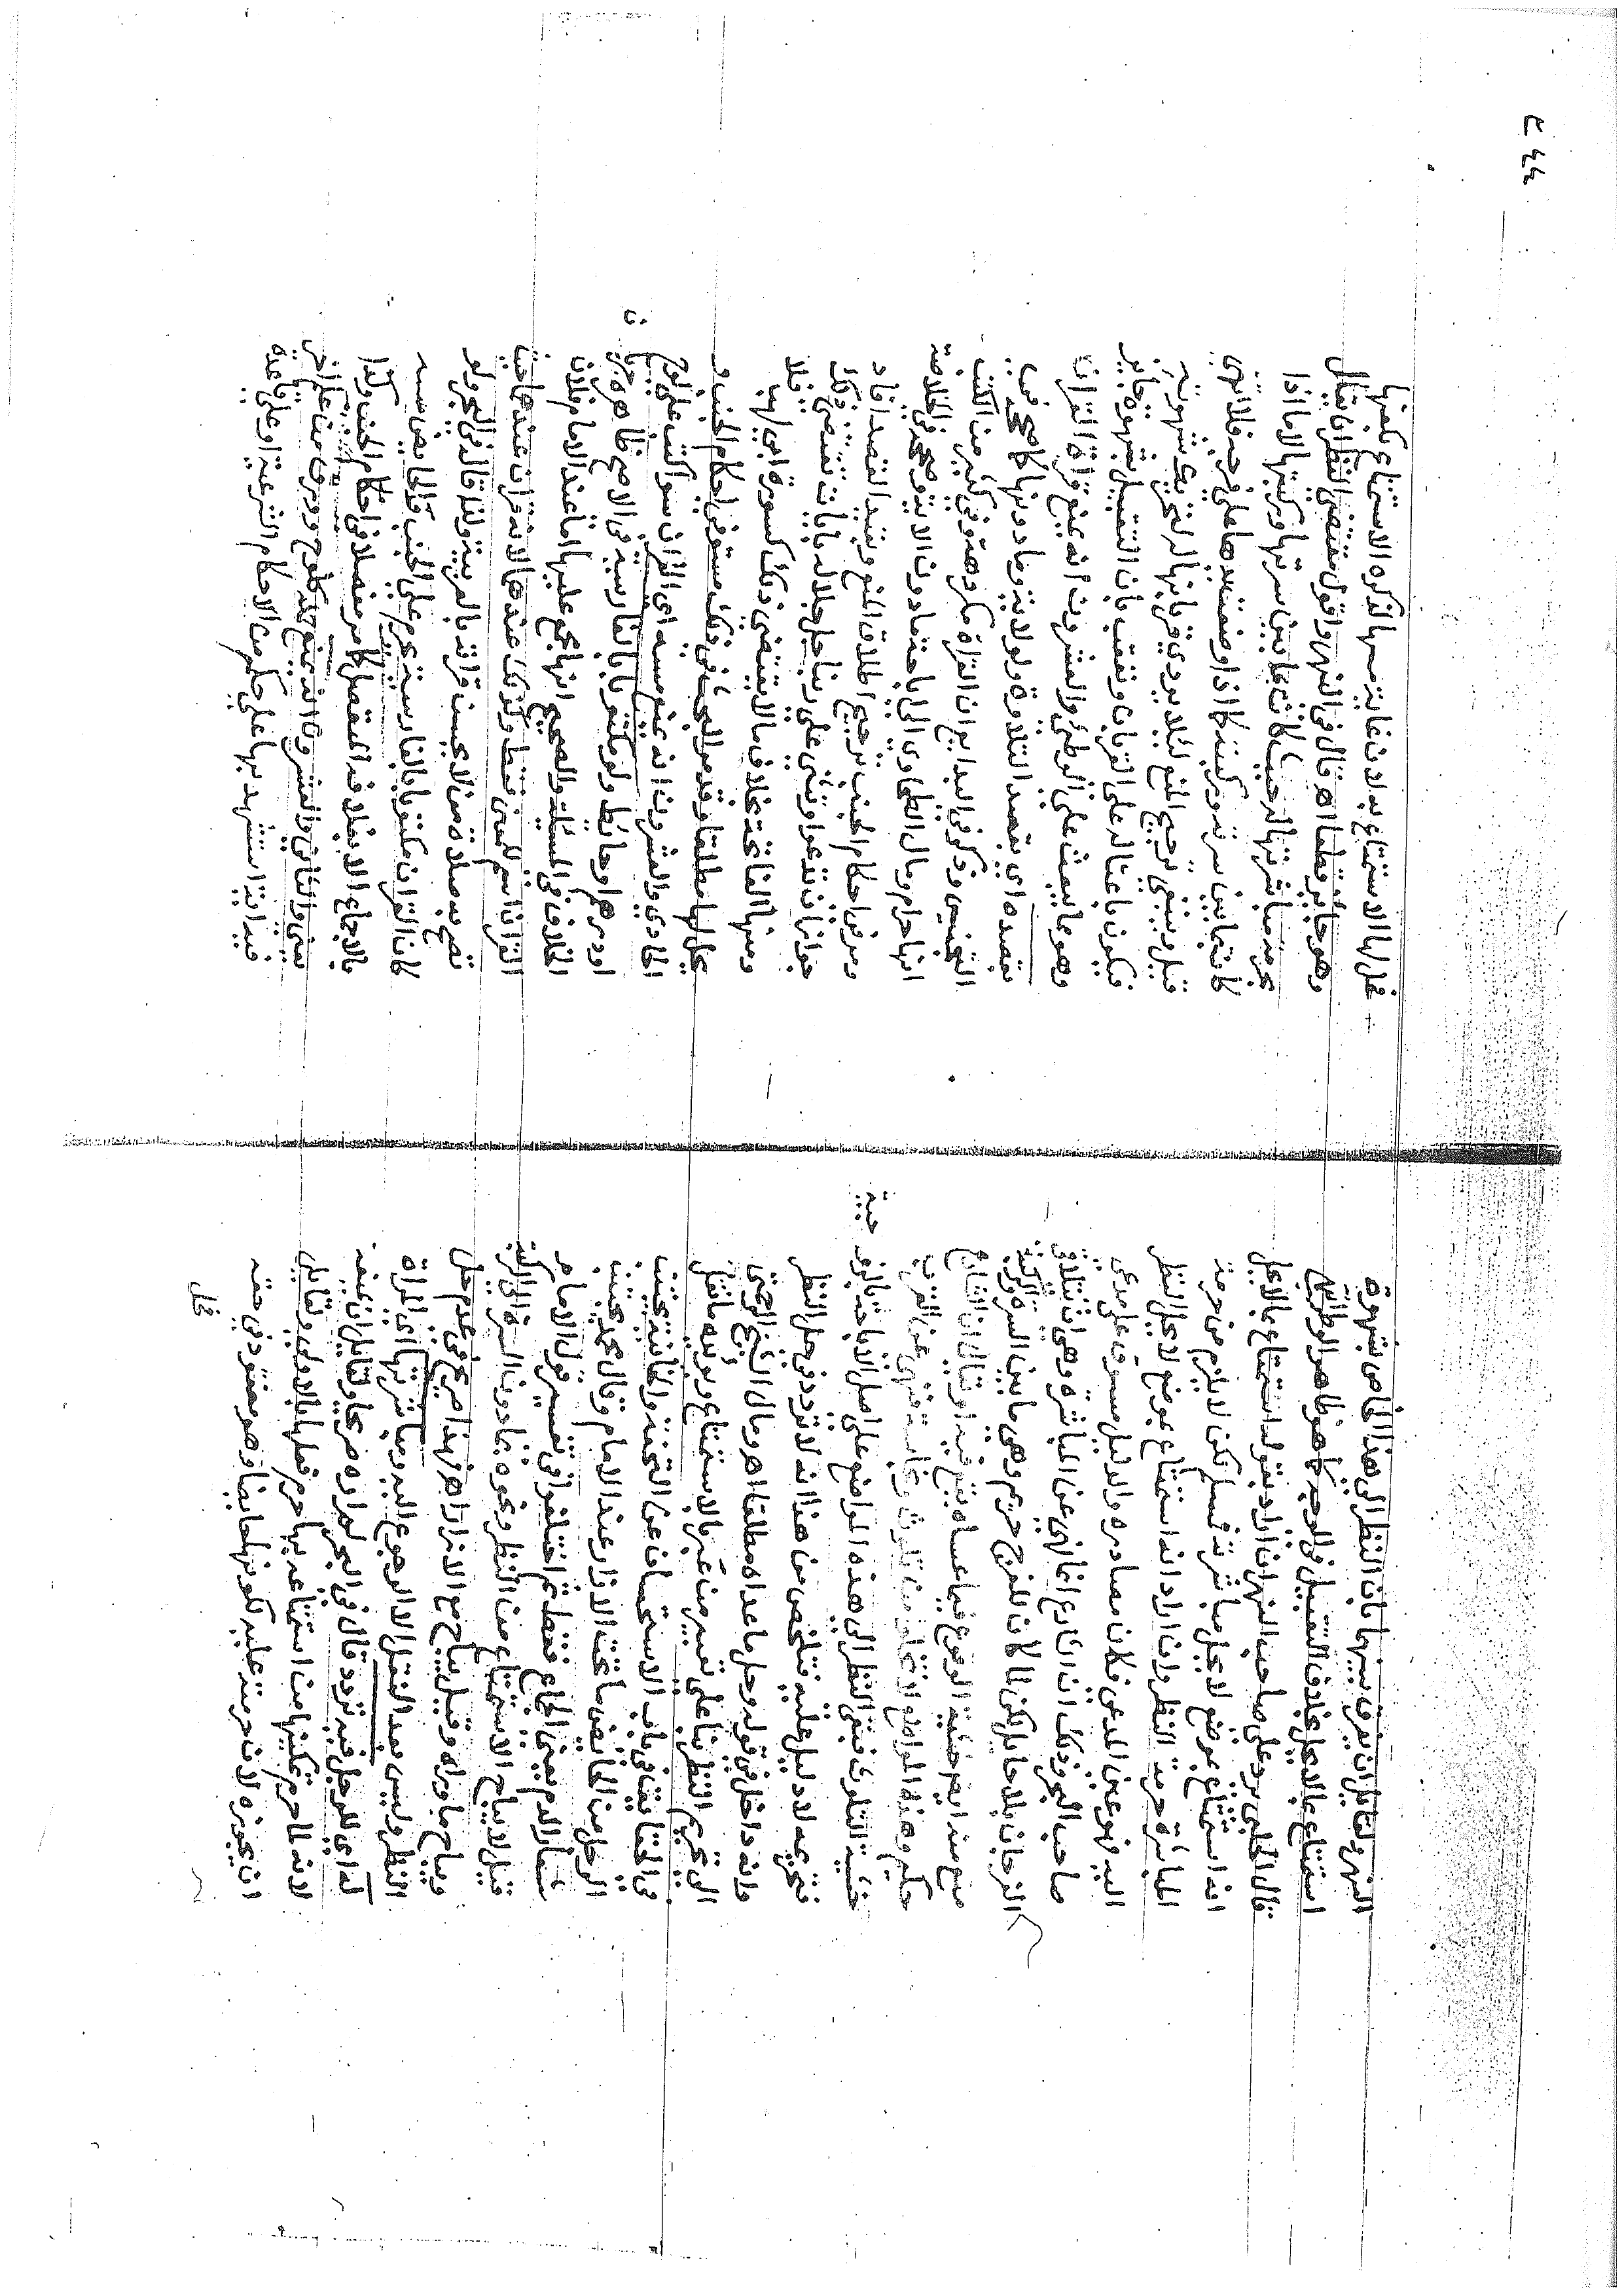 النهر ولقائل ان يفرق بينهما بان النظر الى هذا الخاص بشهوة
استمتاع بما لا يحل بخلاف التقبيل في الوجه كما هو ظاهر الوطئ
قال الحلبي يرد على صاحب النهر ان اراد بقوله استمتاع بما لا يحل
انه استمتاع بموضع لا يحل مباشرته فمسلم لكن لا يلزم من حرمة
المباشرة حرمة النظر وان اراد انه استمتاع بموضع لا يحل النظر
اليه فهو عين المدعى فكان مصادره والدليل مسوق على مدعى
صاحب البحر وذلك ان الشارع انما نهى عن المباشرة وهي ان يتلاقى
الفرجان بلا حايل لكن لما كان للفرج حريم وهي ما بين السرة والركبة
منع منه ايضا خشية الوقوع فيما عساه يقع فيه او يقال ان الشارع
حكيم وهذه المواضع لا تخلو من تلوث نهى عن القرب
خشية التلوث فبقي النظر الى هذه المواضع على اصل الاباحة فالقول
بتحريمه لا دليل عليه فتلخص من هذا انه لا تردد في حل النظر
وانه داخل في قوله وحل ما عداه مطلقا اهـ ومال الشيخ الرحمتي
الى تحريم النظر بناء على تعبير من عبر بالاستمتاع ويؤيده ما نقل
في الحقايق في باب الاستحسان عن التحفة والخانية يجتنب
الرجل من الحايض ما تحت الازار عند الامام وقال محمد يجتنب
شعار الدم يعني الجماع فقط ثم اختلفوا في تفسير قول الامام
قيل لا يباح الاستمتاع من النظر ونحوه بما دون السرة الى الركبة
ويباح ما وراه وقيل يباح مع الازار اهـ فهذا صريح في عدم حل
النظر وليس بعد النقل الا الرجوع اليه ومباشرتها اي المراة
له اي للرجل فيه تردد قال في البحر لم اره صريحا ولقايل ان يمنعه
لانه لما حرم تمكينها من استمتاعه بها حرم فعلها بالاولى ولقايل
ان يجوزه لان حرمته عليه لكونها حايضا وهو مفقود في حقه
فحل
فحل لها الاستمتاع به لان غاية مسها لذكره الاستمتاع بكفها
وهو جايز قطعا اهـ قال في النهر واقول مقتضى النظر ان يقال
بحرمة مباشرتها له حيث كانت بما بين سرتها وركبتها لا ما اذا
كانت بما بين سرته وركبته كما اذا وضعت يدها على فرجه
قيل وينبغي ترجيح المنع لئلا يودي قربانها له لتحريك شهوته
فيكون باعثا له على القربان وتعقب بان التقبيل بشهوة جايز
وهو مما يبعث على الوطئ والعشرون انه يمنع قراة القران
بقصده اي بقصد التلاوة ولو لاية وما دونها كما صححه في
التجنيس وذكر في البدايع ان القراة مكروهة وفي كثير من الكتب
انها حرام ومال الطحاوي الى اباحة ما دون الاية وصححه في الخلاصة
ومر في احكام الجنب ترجيح اطلاق المنع وبقيد القصد افاد
جواز ان تدعوا وتثني على ربنا جل جلاله بايات تقتضي ذلك
ومنها الفاتحة بخلاف ما لا يقتضي ذلك كسورة ابي لهب فلا
يحل لها مطلقا وقد مر البحث في ذلك مستوفى احكام الجنب و
الحادي والعشرون انه يمنع مسه اي القران سوا كتب على لوح
او درهم او حائط ولو مكتوبا بالفارسية في الاصح ظاهره جريان
الخلاف في المسئلة والصحيح انها مجمع عليها اما عند الامام فلان
القران اسم للمعنى فقط ولذلك عندهما لانه قران عندهما حيث
تصح به صلاة من لا يحسن قراته بالعربية ولذا قال في البحر ولو
كان القران مكتوبا بالفارسية يحرم على الجنب والحايض مسه
بالاجماع الا بغلافه المنفصل كما مر مفصلا في احكام الجنب وكذا
يمنع والثاني والعشرون انه يمنع حمله كلوح وورق
فيه اية استشهد بها على حكم من الاحكام الشرعية او على قاعدة